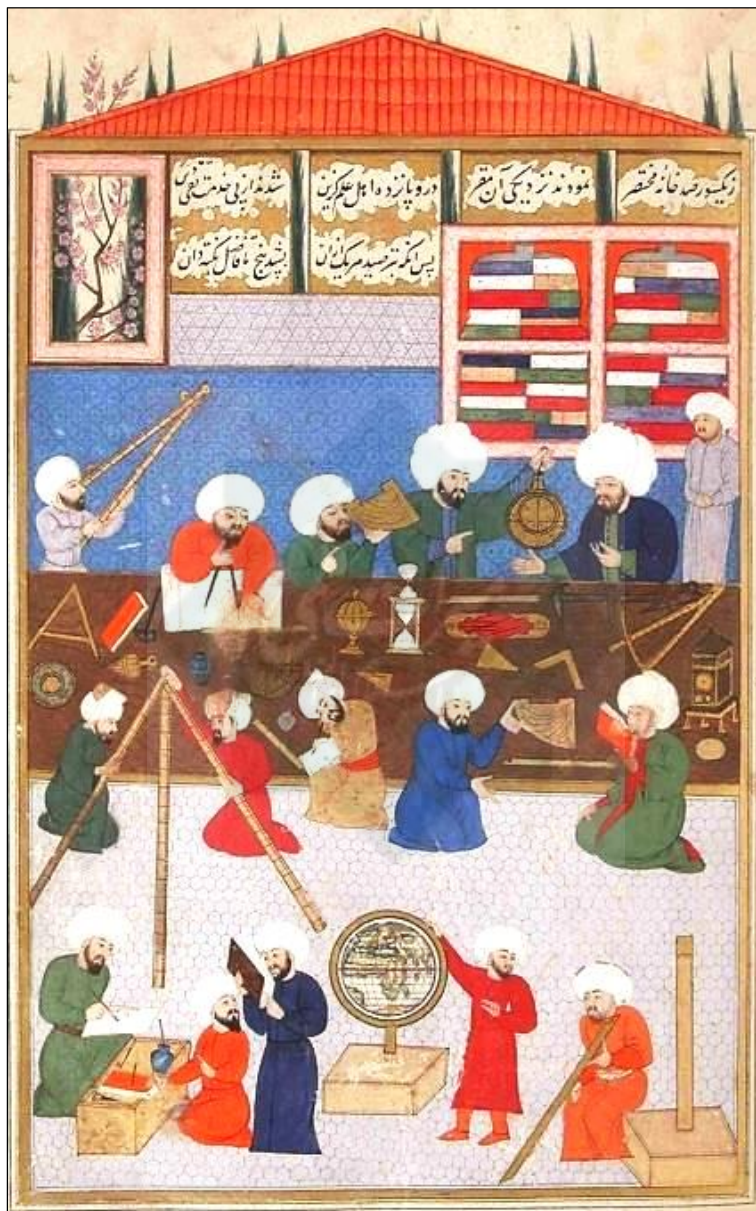 ز یکسو رصد خانه مختصر نمودند نزدیکی آن مقر درو پانزده اهل علم گزین شدند از پی خدمت تقی
پس آنکه بترصید هر یک ازان بشد پنج فاضل نکته دان